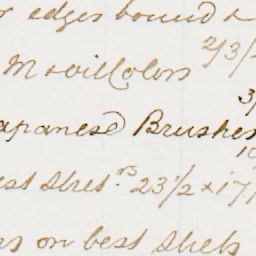 edges bound &
2/3/
M & vill Colors
3/
apanese Brushes
10
est Stres.rs 23 1/2 x 17 1
on best Shets